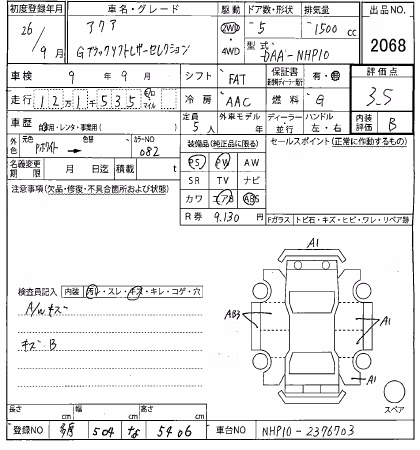 初度登録年月 車名・グレード 駆動 ドア数・形状 排気量 出品NO.
26/9月 アクア 2WD ・ 4WD 5 1500 cc 2068
Gブラックソフトレザーセレクション 型式 DAA-NHP10
車検 9年9月 シフト FAT 保証書 有・無 評価点
走行 12万1千535 キロ マイル 冷房 AAC 燃料 G 3.5
車歴 自家用・レンタ・事業用( ) 定員 5人 外車モデル ディーラー・並行 ハンドル 左・右 内装評価 B
外色 元色 Pホワイト 色替 カラーNO 082 装備品(純正品に限る) セールスポイント(正常に作動するもの)
名義変更期限 月 日迄 積載 t PS PW AW
注意事項(欠品・修復・不具合箇所および状態) SR TV ナビ
カワ エアB ABS
R券 9.130円 Fガラス トビ石・キズ・ヒビ・ワレ・リペア跡
A1
検査員記入 内装 汚レ・スレ・キズ・キレ・コゲ・穴
A/Wキズ
キズB
AB3
A1
A1
スペア
長さ cm 幅 cm 高さ cm
登録NO 504 な 5406 車台NO NHP10-2376703